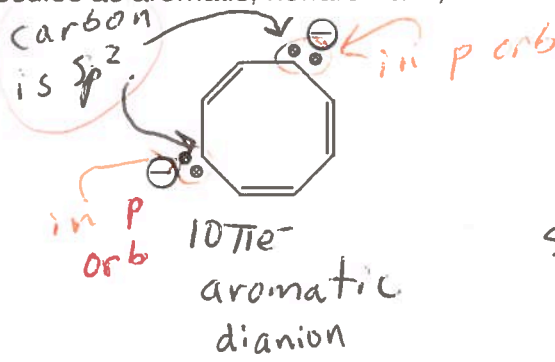 carbon
is Sp²
in p orb
in p
orb
10πe⁻
aromatic
dianion